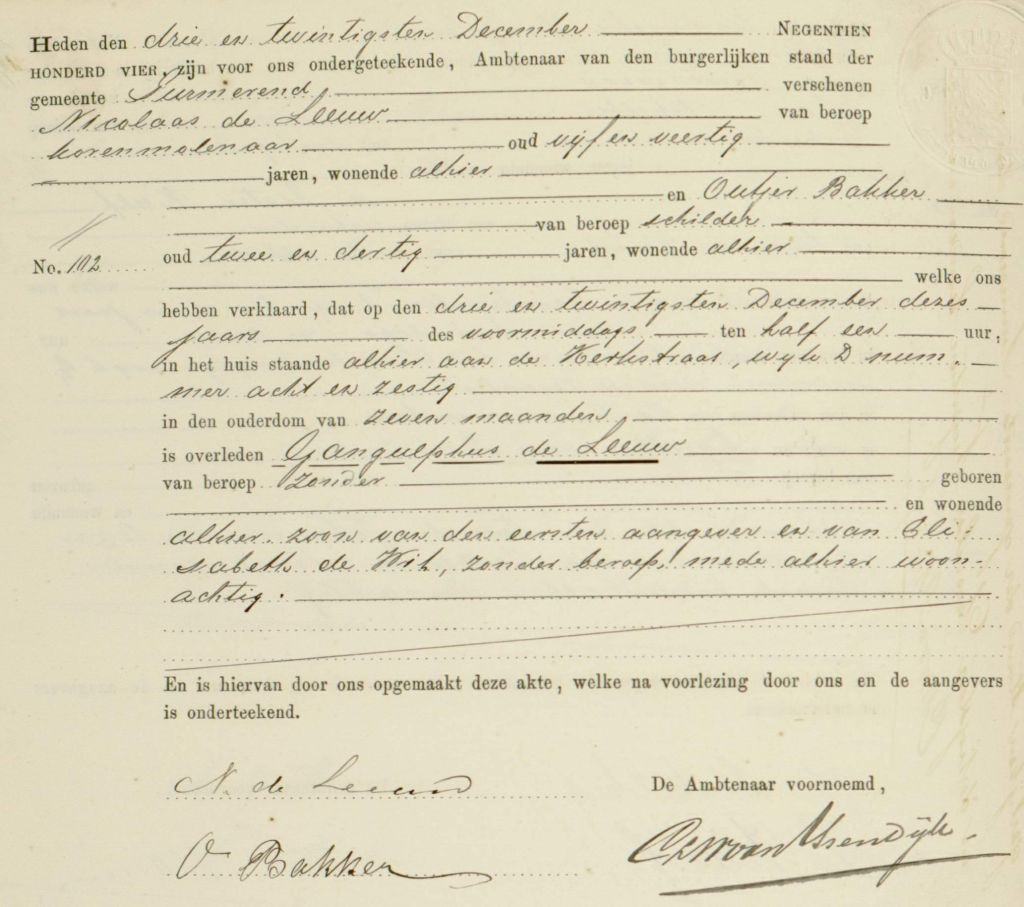 Heden den drie en twintigsten December NEGENTIEN
HONDERD VIER, zijn voor ons ondergeteekende, Ambtenaar van den burgerlijken stand der
gemeente Purmerend, verschenen
Nicolaas de Leeuw van beroep
korenmolenaar oud vijf en veertig
jaren, wonende alhier
en Outjer Bakker
van beroep schilder
No. 102 oud twee en dertig jaren, wonende alhier
welke ons
hebben verklaard, dat op den drie en twintigsten December dezes
jaars des voormiddags ten half een uur,
in het huis staande alhier aan de Kerkstraat, wijk D num-
mer acht en zestig
in den ouderdom van zeven maanden,
is overleden Gangulphus de Leeuw
van beroep zonder geboren
en wonende
alhier. zoon van den eersten aangever en van Eli-
sabeth de Wit, zonder beroep, mede alhier woon-
achtig.
En is hiervan door ons opgemaakt deze akte, welke na voorlezing door ons en de aangevers
is onderteekend.
N. de Leeuw De Ambtenaar voornoemd,
O Bakker